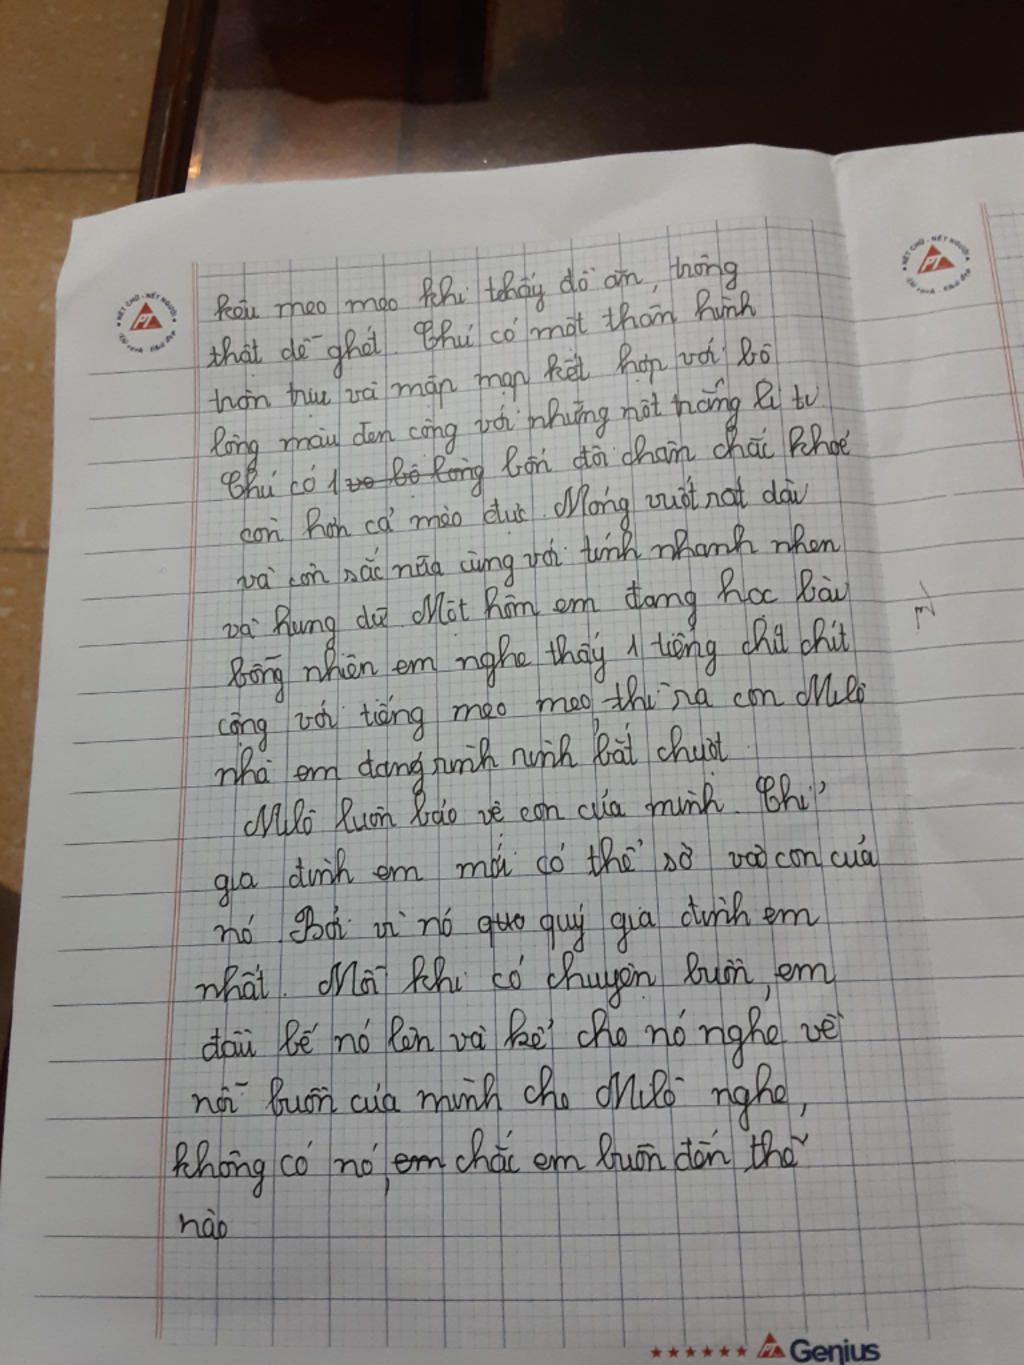 kêu meo meo khi thấy đồ ăn, trông
thật dễ ghét. Chú có một thân hình
tròn trịu và mập mạp kết hợp với bộ
lông màu đen cộng với những nốt trắng li ti
Chú có 1 vo bộ lông bốn đôi chân chắc khoẻ
con hơn cả mèo đực. Móng vuốt rất dài
và còn sắc nữa cùng với tính nhanh nhẹn
và hung dữ Một hôm em đang học bài
bỗng nhiên em nghe thấy 1 tiếng chít chít
cộng với tiếng meo meo, thì ra con Milô
nhà em đang rình rình bắt chuột.
Milô luôn bảo vệ con của mình. Chỉ
gia đình em mới có thể sờ vào con của
nó. Bởi vì nó quo quý gia đình em
nhất. Mỗi khi có chuyện buồn, em
đều bế nó lên và kể cho nó nghe về
nỗi buồn của mình cho Milô nghe,
không có nó, em chắc em buồn đến thế
nào
NÉT CHỮ - NẾT NGƯỜI
PT
NÉT CHỮ - NẾT NGƯỜI
PT
PT Genius